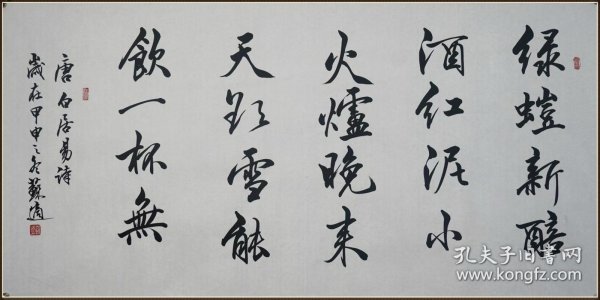 绿螘新醅
酒红泥小
火爐晚来
天欲雪能
飲一杯無
唐白居易詩
歲在甲申之冬蘇
孔夫子旧书网
www.kongfz.com